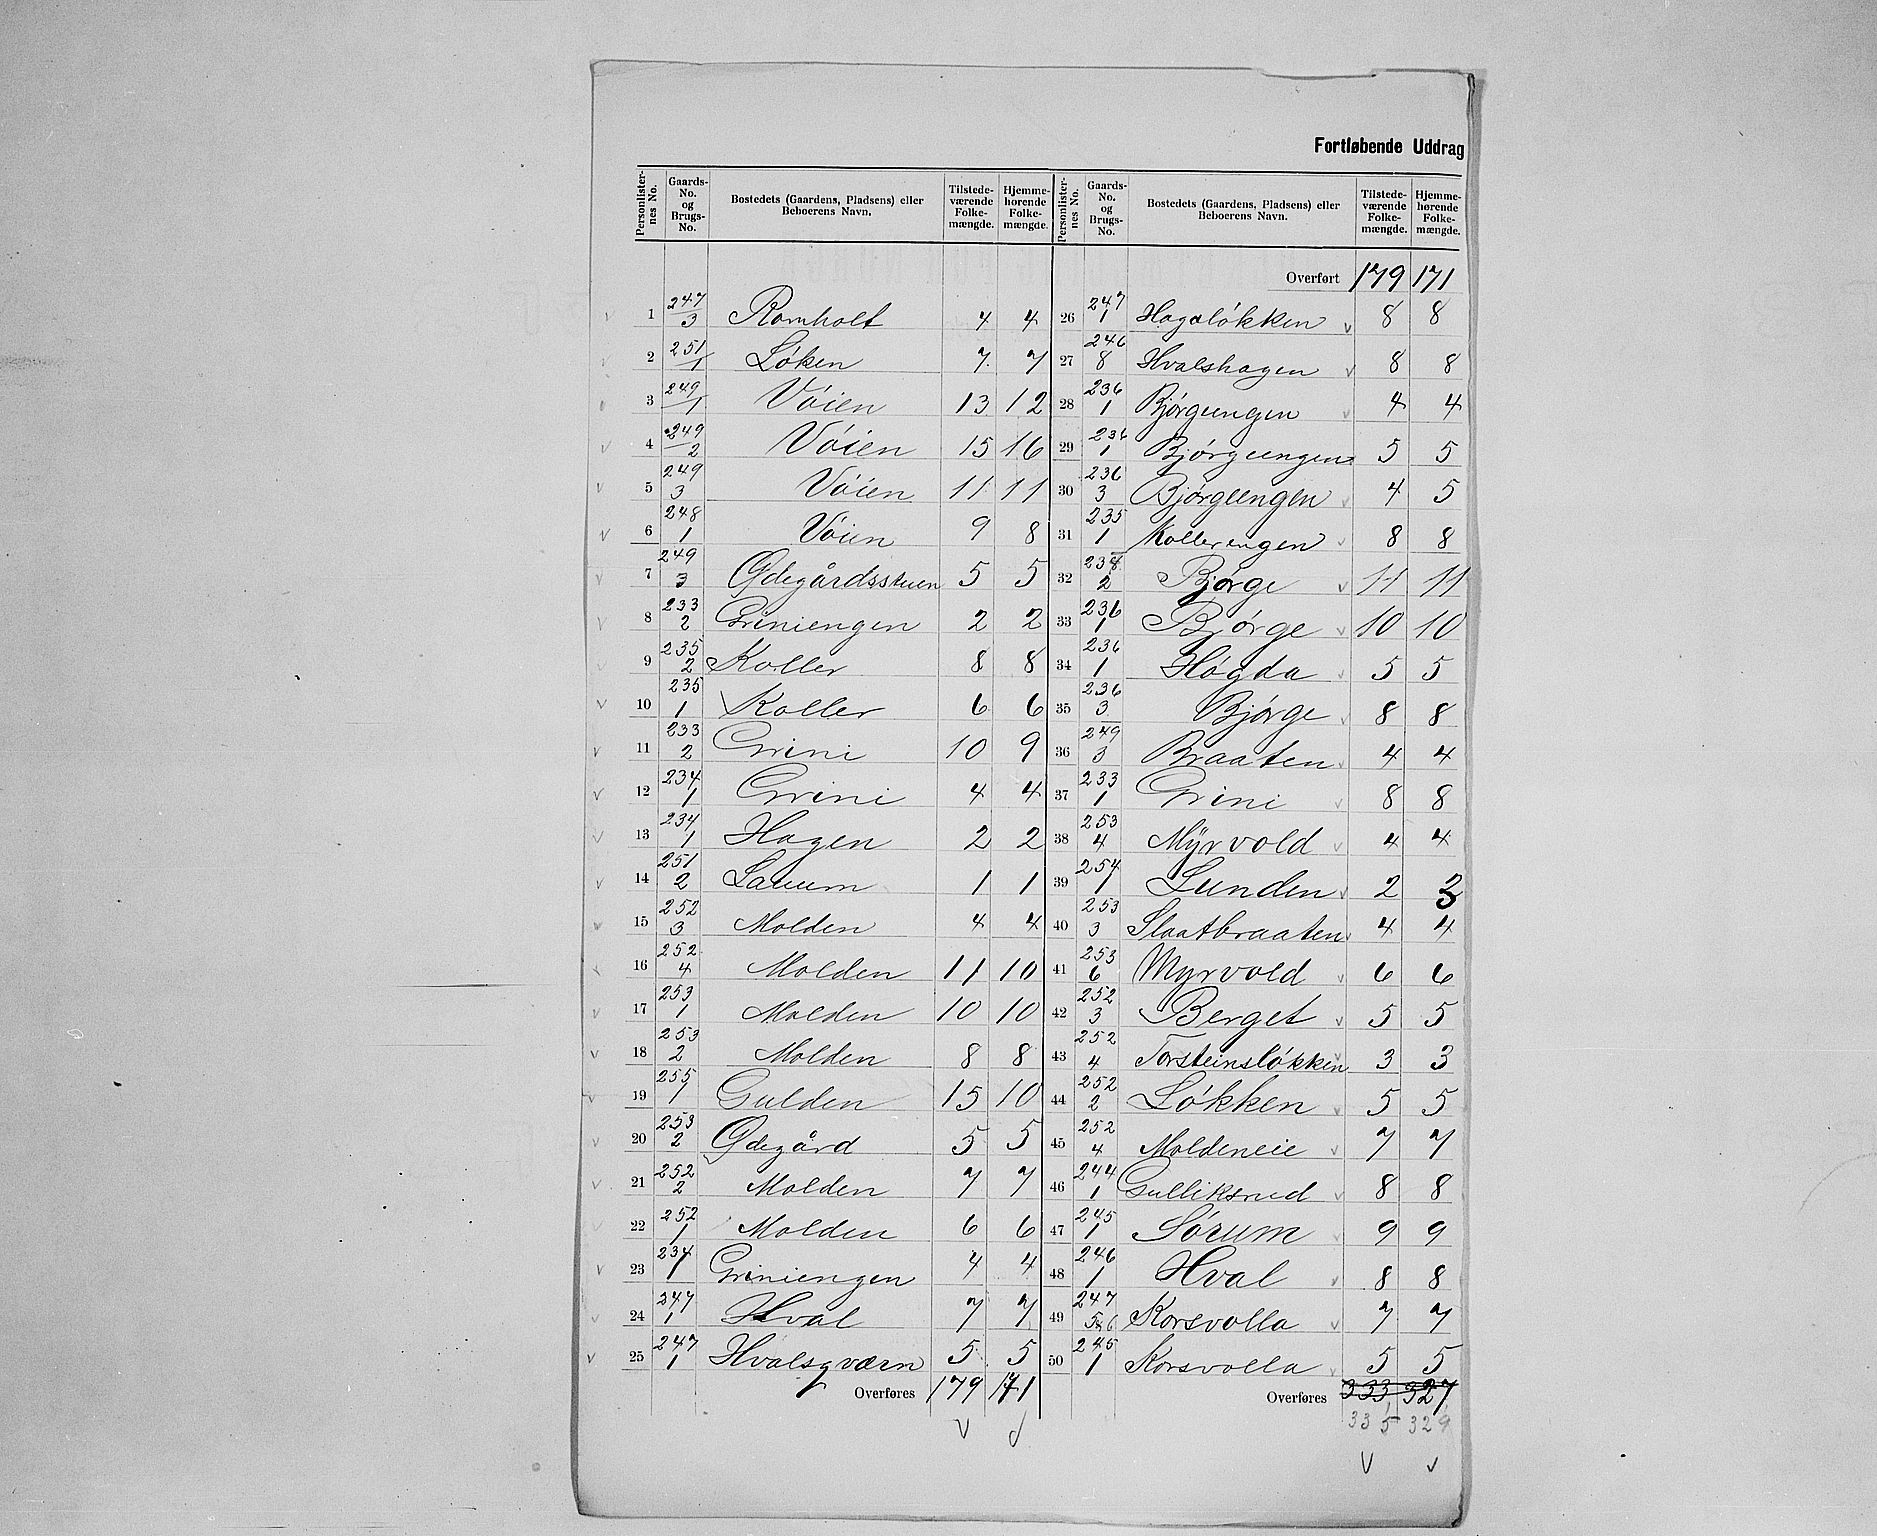 Fortløbende Uddrag
Personlisternes No. Gaards-No. og Brugs-No. Bostedets (Gaardens, Pladsens) eller Beboerens Navn. Tilstedeværende Folkemængde. Hjemmehørende Folkemængde. Personlisternes No. Gaards-No. og Brugs-No. Bostedets (Gaardens, Pladsens) eller Beboerens Navn. Tilstedeværende Folkemængde. Hjemmehørende Folkemængde.
1 247/3 Romholt 4 4
2 251/1 Löken 7 7
3 249/1 Vöien 13 12
4 249/2 Vöien 15 16
5 249/3 Vöien 11 11
6 248/1 Vöien 9 8
7 249/3 Ødegårdsstuen 5 5
8 233/2 Griniengen 2 2
9 235/2 Koller 8 8
10 235/1 Koller 6 6
11 233/2 Grini 10 9
12 234/1 Grini 4 4
13 234/1 Hagen 2 2
14 251/2 1 1
15 252/3 Molden 4 4
16 252/4 Molden 11 10
17 253/1 Molden 10 10
18 253/2 Molden 8 8
19 255/1 Gulden 15 10
20 253/2 Ødegård 5 5
21 252/2 Molden 7 7
22 252/1 Molden 6 6
23 234/1 Griniengen 4 4
24 247/1 Hval 7 7
25 247/1 Hvalsqværn 5 5
Overføres 179 171
Overført 179 171
26 247/1 Hagaløkken 8 8
27 246/8 Hvalshagen 8 8
28 236/1 Bjørgeengen 4 4
29 236/1 Bjørgeengen 5 5
30 236/3 Bjørgeengen 4 5
31 235/1 Kollerengen 8 8
32 2 Bjørge 11 11
33 236/1 Bjørge 10 10
34 236/1 Høgda 5 5
35 236/3 Bjørge 8 8
36 249/3 Braaten 4 4
37 233/1 Grini 8 8
38 253/4 Myrvold 4 4
39 254/1 Lunden 2 3
40 253/3 Slaatbraaten 4 4
41 253/6 Myrvold 6 6
42 252/3 Berget 5 5
43 252/4 Torsteinsløkken 3 3
44 252/2 Løkken 5 5
45 252/4 Moldeneie 7 7
46 244/1 Gulliksrud 8 8
47 245/1 Sørum 9 9
48 246/1 Hval 8 8
49 247/5&6 Korsvolla 7 7
50 245/1 Korsvolla 5 5
Overføres 333 327
335 329